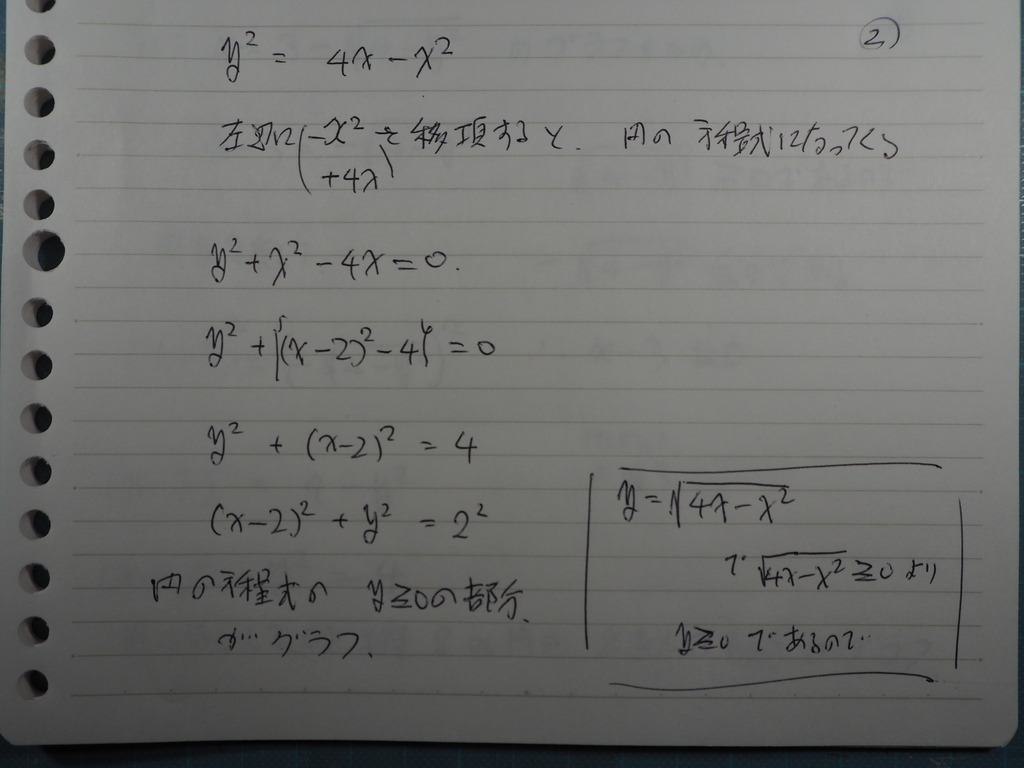 2)
y² = 4x - x²
左辺に(-x² +4x)を移項すると、円の方程式になってくる
y² + x² - 4x = 0.
y² + {(x-2)² - 4} = 0
y² + (x-2)² = 4
(x-2)² + y² = 2²
円の方程式の y≧0の部分、
が グラフ、
y = √4x - x²
で √4x - x² ≧0 より
y≧0 であるので